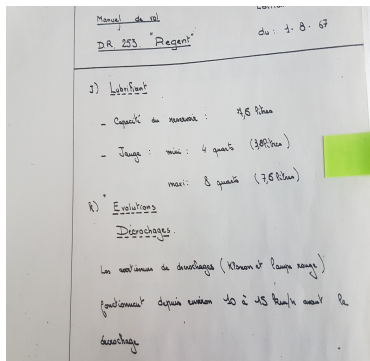 Manuel de vol
D.R. 253 "Regent"
du : 1. 8. 67
J) Lubrifiant
- Capacité du reservoir : 7,5 litres
- Jauge : mini : 4 quarts (3,8 litres)
maxi : 8 quarts (7,5 litres)
K) Evolutions
Décrochages.
Les avertisseurs de decrochages (Klaxon et lampe rouge)
fonctionnent depuis environ 10 à 15 km/h avant le
decrochage